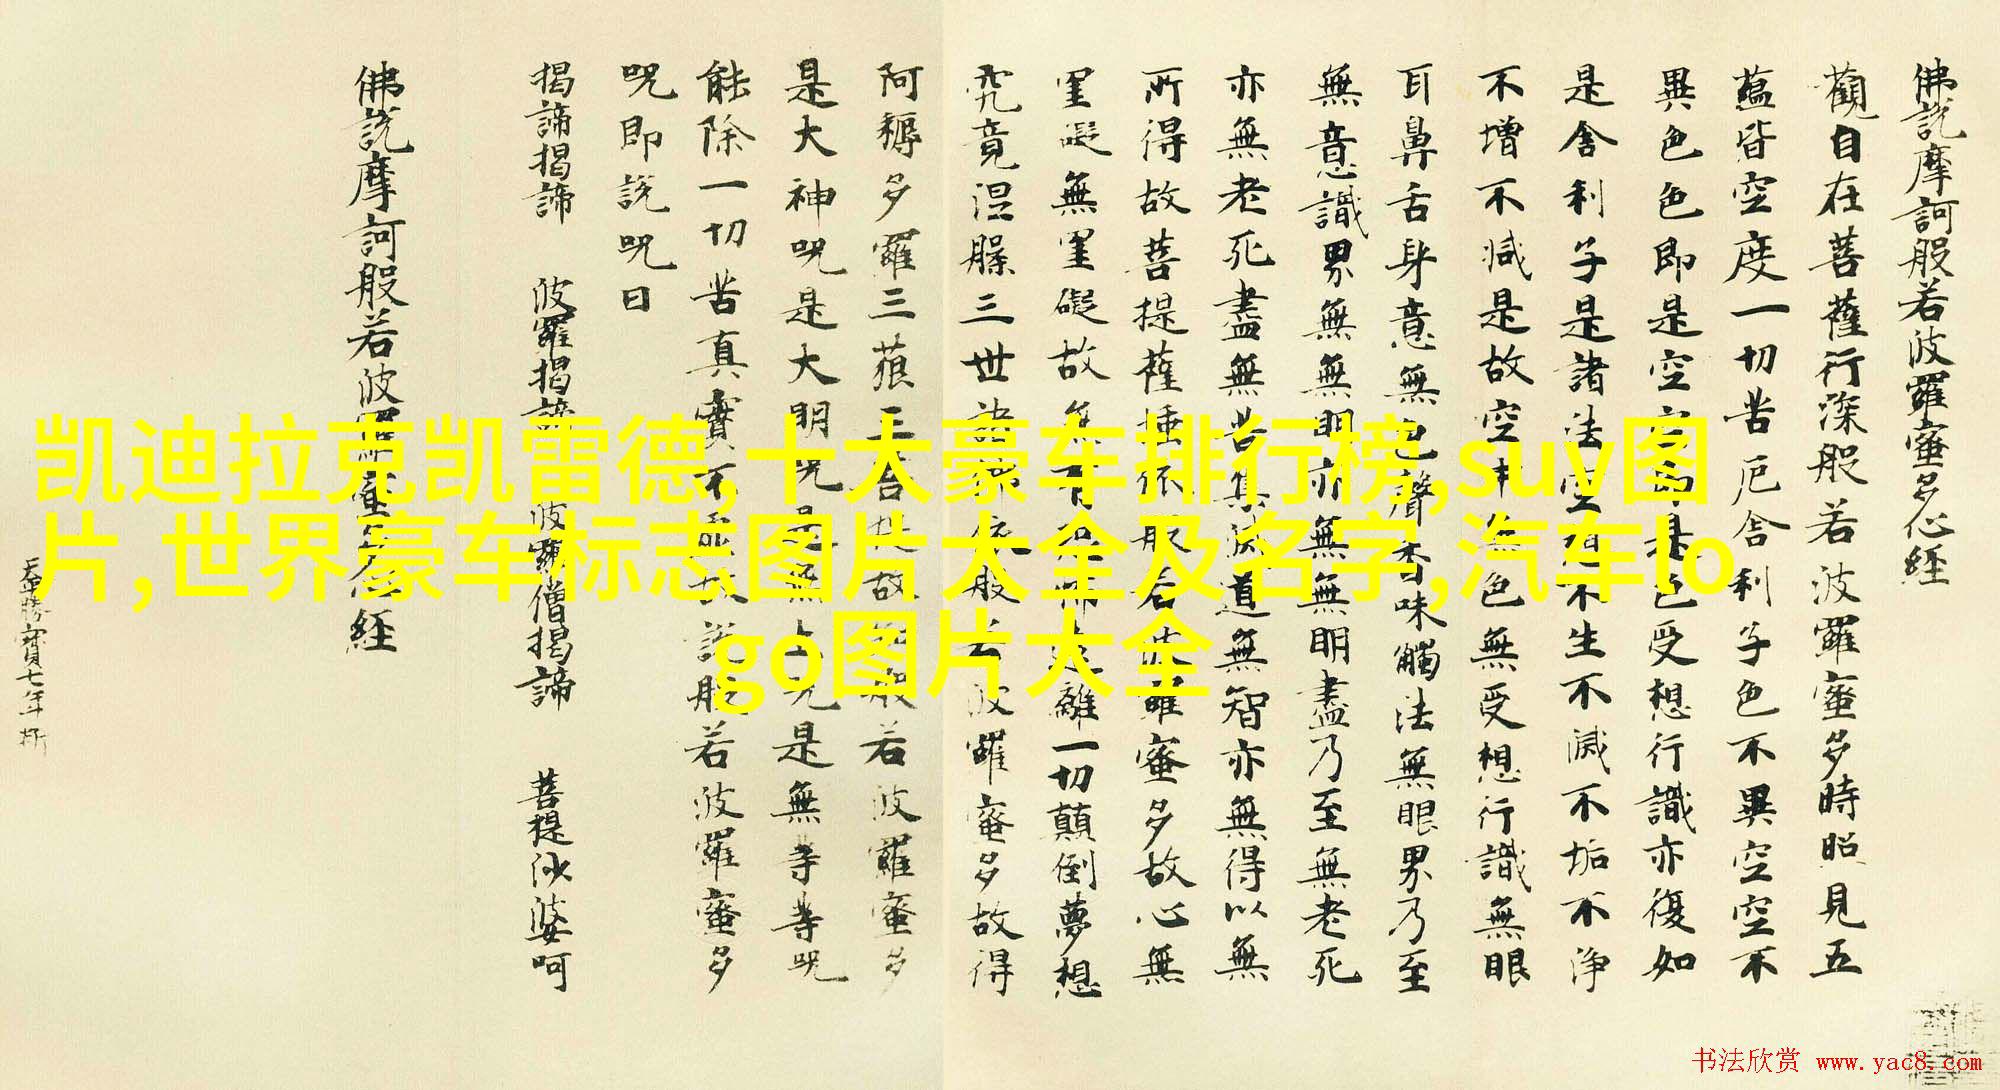 佛說摩訶般若波羅蜜多心經
觀自在菩薩行深般若波羅蜜多時照見五
蘊皆空度一切苦厄舍利子色不異空空不
異色色即是空空即是色受想行識亦復如
是舍利子是諸法空相不生不滅不垢不淨
不增不減是故空中無色無受想行識無眼
耳鼻舌身意無色聲香味觸法無眼界乃至
無意識界無無明亦無無明盡乃至無老死
亦無老死盡無苦集滅道無智亦無得以無
所得故菩提薩埵依般若波羅蜜多故心無
罣礙無罣礙故無有恐怖遠離一切顛倒夢想
究竟涅槃三世諸佛依般若波羅蜜多故得
阿耨多羅三藐三菩提故知般若波羅蜜多
是大神呪是大明呪是無上呪是無等等呪
能除一切苦真實不虛故說般若波羅蜜多
呪即説呪曰
揭諦揭諦 波羅揭諦 波羅僧揭諦 菩提沙婆呵
佛說摩訶般若波羅蜜多心經
天平勝寶七年
凯迪拉克凯雷德,十大豪车排行榜,suv图
片,世界豪车标志图片大全及名字,汽车lo
go图片大全
书法欣赏 www.yac8.com